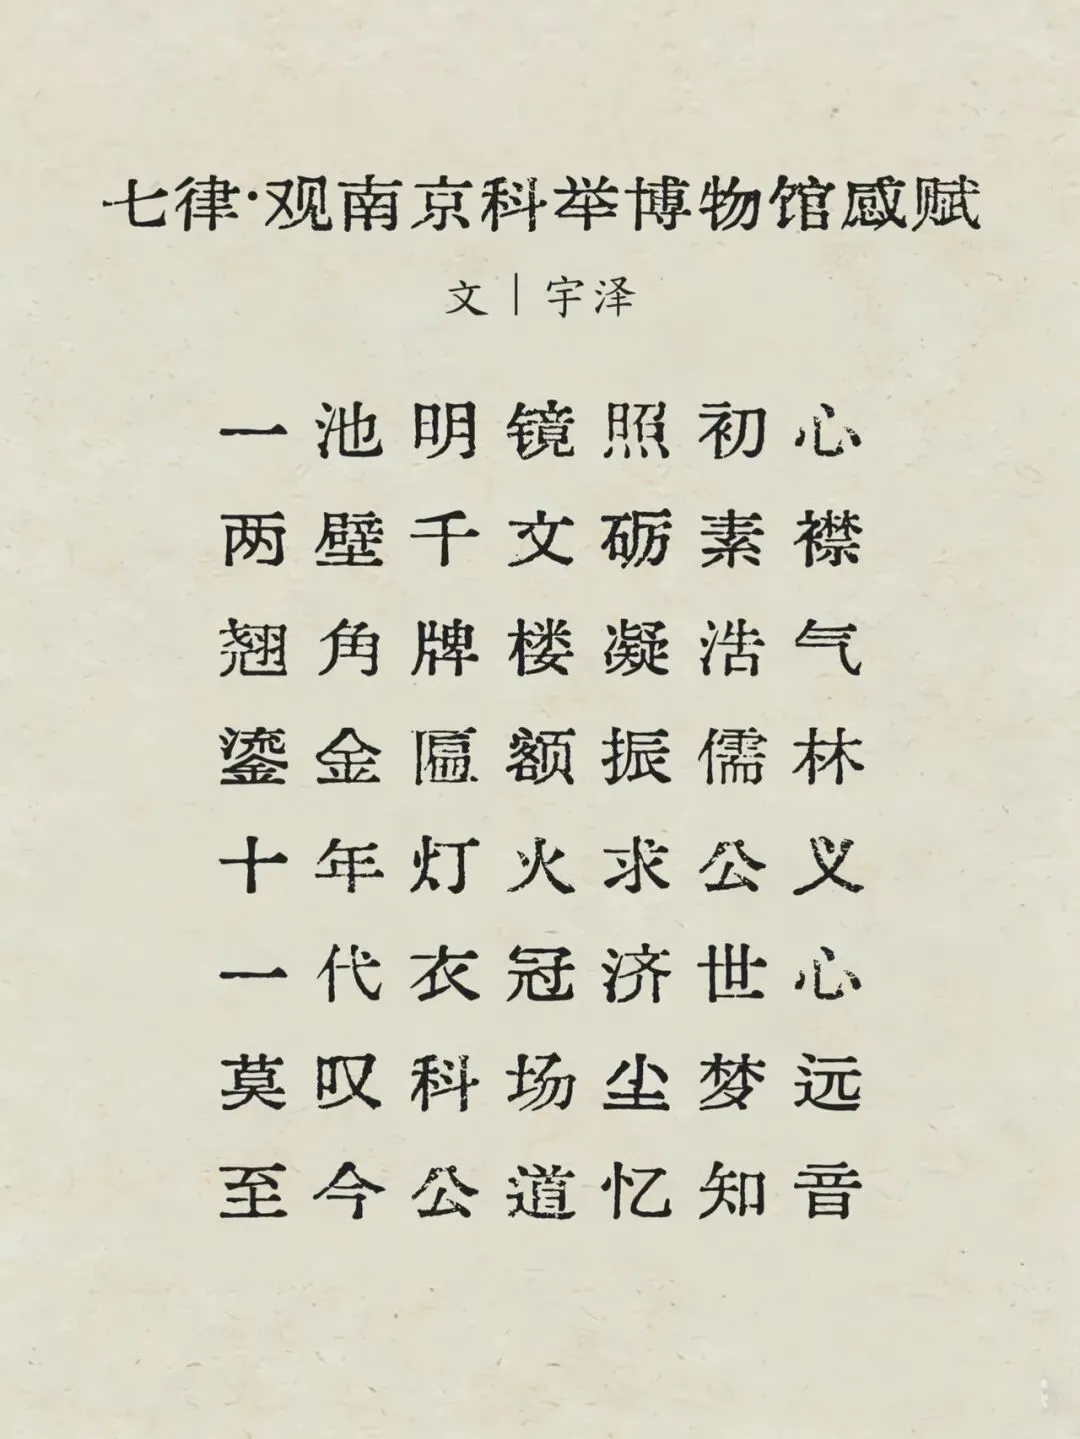 七律·观南京科举博物馆感赋
文｜宇泽
一池明镜照初心
两壁千文砺素襟
翘角牌楼凝浩气
鎏金匾额振儒林
十年灯火求公义
一代衣冠济世心
莫叹科场尘梦远
至今公道忆知音